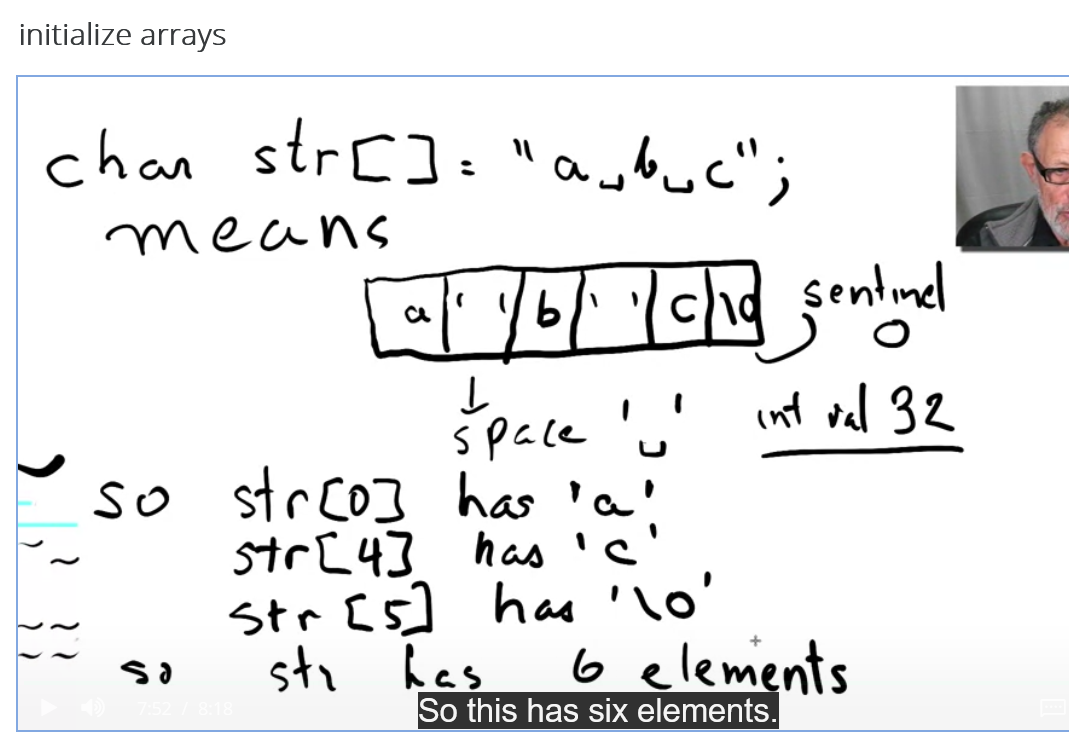 initialize arrays
char str[] = "a␣b␣c";
means
a ' ' b ' ' c \0 sentinel
0
space '␣' int val 32
so str[0] has 'a'
str[4] has 'c'
str[5] has '\0'
so str has 6 elements
7:52 / 8:18
So this has six elements.